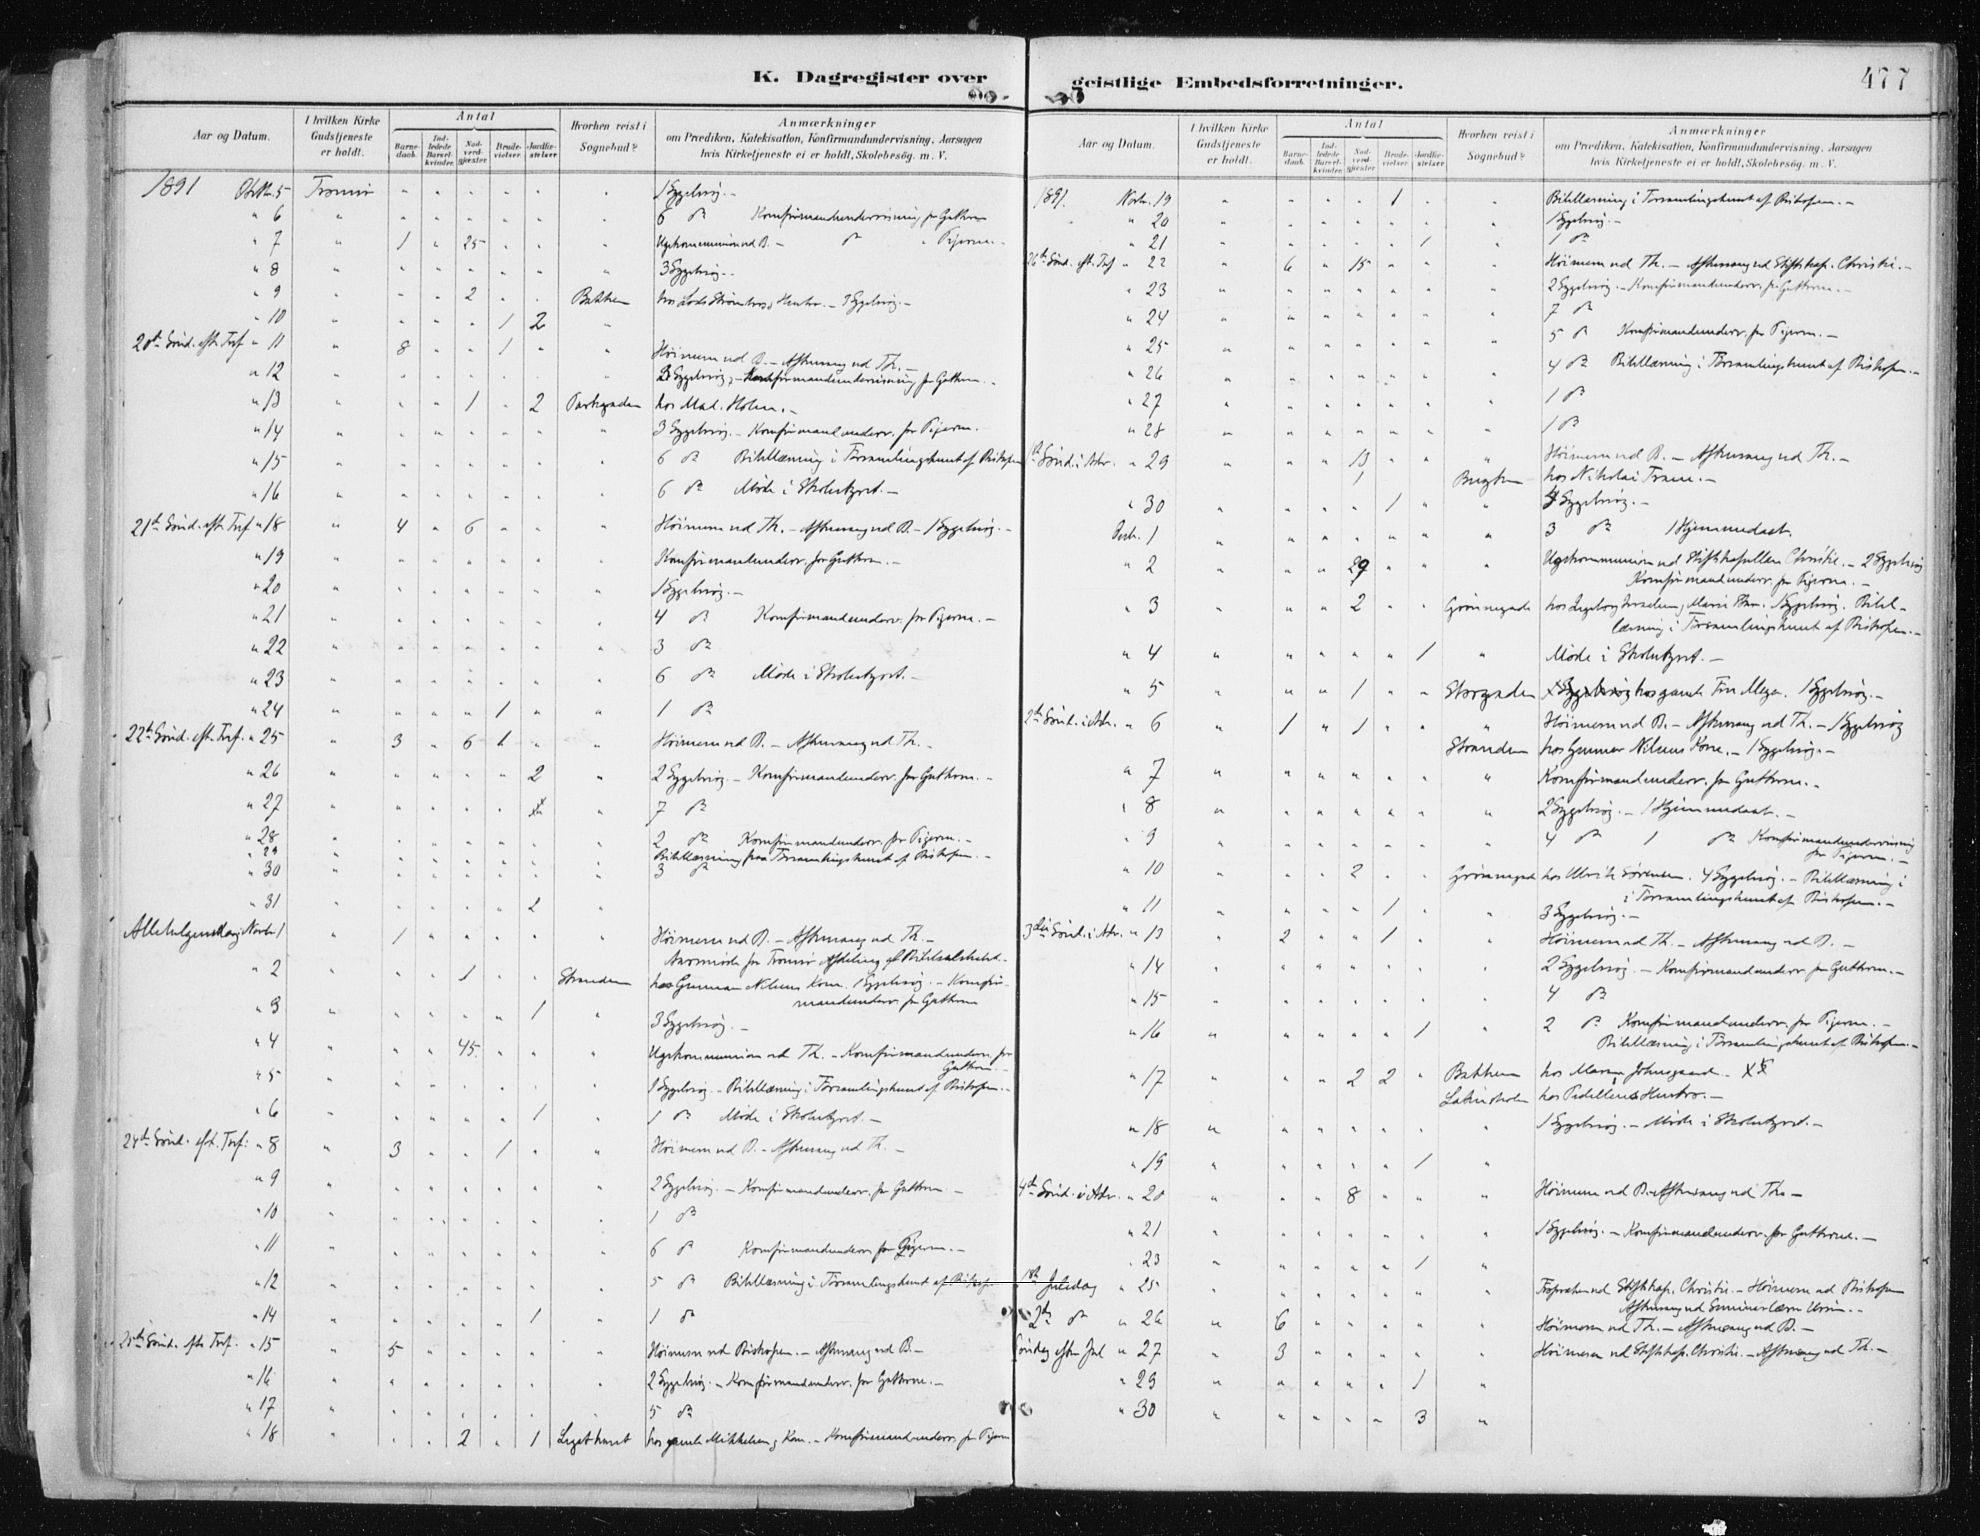 K. Dagregister over geistlige Embedsforretninger.
477
Aar og Datum.
I hvilken Kirke Gudstjeneste er holdt.
Antal
Barnedaab.
Indledede Barselkvinder.
Nadverdgjester
Brudevielser
Jordfæstelser
Hvorhen reist i Sognebud?
Anmærkninger
om Prædiken, Katekisation, Konfirmandundervisning, Aarsagen
hvis Kirketjeneste ei er holdt, Skolebesøg. m. V.
1891 Oktbr. 5 Tromsø 1 Sygebesøg. —
" 6 6 do Konfirmandundervisning for Guttene
" 7 1 25 Ugekommunion ved B. — do " Pigerne. —
" 8 3 Sygebesøg. —
" 9 2 Bakken hos Lods Hustru. — Sygebesøg. —
" 10 1 2
20de Sönd. efter Tref. " 11 8 1 Høimesse ved B. — Aftensang ved Th. —
" 12 Sygebesøg, — Konfirmandundervisning for Guttene. —
" 13 1 2 Parkgaden hos Mad. Holm. —
" 14 3 Sygebesøg. — Konfirmandunderv. for Pigerne.
" 15 6 do Bibellæsning i Forsamlingshuset af Biskopen
" 16 6 do Møde i Skolestyret. —
21de Sönd. efter Tref. " 18 4 6 Høimesse ved Th. — Aftensang ved B. — 1 Sygebesøg. —
" 19 Konfirmandunderv. for Guttene. —
" 20 1 Sygebesøg. —
" 21 4 do Konfirmandunderv. for Pigerne. —
" 22 3 do
" 23 6 do Møde i Skolestyret. —
" 24 1 1 do
22de Sönd. efter Tref. " 25 3 6 1 Høimesse ved B. — Aftensang ved Th. —
" 26 2 2 Sygebesøg. — Konfirmandunderv. for Guttene. —
" 27 7 do
" 28 2 do Konfirmandunderv. for Pigerne. —
" 29 Bibellæsning fra Forsamlingshuset af Biskopen. —
" 30 3 do
" 31 2
Allehelgensdag Novbr. 1 1 Høimesse ved B. — Aftensang ved Th. —
Aarsmøde for Tromsø Afdeling af Bibelselskabet. —
" 2 1 Stranden hos Gunnar Nilsens Kone. 1 Sygebesøg. — Konfirmandunderv. for Guttene
" 3 1 3 Sygebesøg. —
" 4 45 Ugekommunion ved Th. — Konfirmandunderv. for Guttene. —
" 5 1 Sygebesøg. — Bibellæsning i Forsamlingshuset af Biskopen. —
" 6 1 1 do Møde i Skolestyret. —
24de Sönd. efter Tref. " 8 3 1 Høimesse ved B. — Aftensang ved Th. —
" 9 2 Sygebesøg. — Konfirmandunderv. for Guttene —
" 10 1 do
" 11 6 do Konfirmandunderv. for Pigerne. —
" 12 5 do Bibellæsning i Forsamlingshuset af Biskopen
" 14 1 1 do
25de Sönd. efter Tref. " 15 5 Høimesse ved Biskopen. — Aftensang ved B. —
" 16 2 Sygebesøg. — Konfirmandunderv. for Guttene. —
" 17 5 do
" 18 2 1 hos gamle Mikkelsens Kone. — Konfirmandunderv. for Pigerne
Aar og Datum.
I hvilken Kirke Gudstjeneste er holdt.
Antal
Barnedaab.
Indledede Barselkvinder.
Nadverdgjester
Brudevielser
Jordfæstelser
Hvorhen reist i Sognebud?
Anmærkninger
om Prædiken, Katekisation, Konfirmandundervisning, Aarsagen
hvis Kirketjeneste ei er holdt, Skolebesøg. m. V.
1891. Novbr. 19 1 Bibellæsning i Forsamlingshuset af Biskopen. —
" 20 1 Sygebesøg. —
" 21 1 1 do
26de Sönd. eft. Tref. " 22 6 15 Høimesse ved Th. — Aftensang ved Stiftskap. Christie. —
" 23 2 Sygebesøg. — Konfirmandunderv. for Guttene. —
" 24 7 do
" 25 5 do Konfirmandunderv. for Pigerne. —
" 26 4 do Bibellæsning i Forsamlingshuset af Biskopen. —
" 27 1 do
" 28 1 do
1ste Sönd. i Adv. " 29 13 Høimesse ved B. — Aftensang ved Th. —
1 hos Nikolai —
" 30 1 4 Sygebesøg. —
Decbr. 1 3 do 1 Hjemmedaab.
" 2 29 Ugekommunion ved Stiftskapellan Christie. — 2 Sygebesøg
Konfirmandunderv. for Pigerne. —
" 3 2 Grønnegade hos Marie 1 Sygebesøg. Bibellæsning i Forsamlingshuset af Biskopen. —
" 4 1 Møde i Skolestyret. —
" 5 1 Storgaden hos gamle 1 Sygebesøg. —
2den Sönd. i Adv. " 6 1 1 Høimesse ved B. — Aftensang ved Th. — 1 Sygebesøg
Stranden hos Gunnar Nilsens Kone. — 1 Sygebesøg. —
" 7 Konfirmandunderv. for Guttene. —
" 8 2 Sygebesøg. — 1 Hjemmedaab. —
" 9 4 do 1 do Konfirmandundervisning for Pigerne. —
" 10 2 Grønnegade hos Ulrik Sörensen. 4 Sygebesøg. — Bibellæsning i
i Forsamlingshuset af Biskopen. —
" 11 1 3 Sygebesøg. —
3die Sönd. i Adv. " 13 2 1 Høimesse ved Th. — Aftensang ved B. —
" 14 2 Sygebesøg. — Konfirmandunderv. for Guttene. —
" 15 4 do
" 16 1 2 do Konfirmandunderv. for Pigerne. —
Bibellæsning i Forsamlingshuset af Biskopen. —
" 17 2 2 Bakken hos
hos Hustru. —
" 18 1 Sygebesøg. — Møde i Skolestyret. —
" 19 1
4de Sönd. i Adv. " 20 8 Høimesse ved B. — Aftensang ved Th. —
" 21 1 Sygebesøg. — Konfirmandunderv. for Guttene. —
" 23 1
1ste Juledag " 25 Froprædiken ved Stiftskap. Christie. — Høimesse ved Biskopen
Aftensang ved Seminarlærer
2den do " 26 6 Høimesse ved Th. — Aftensang ved B. —
Söndag efter Jul " 27 3 Høimesse ved Stiftskap. Christie. — Aftensang ved Th. —
" 29 1
" 30 3